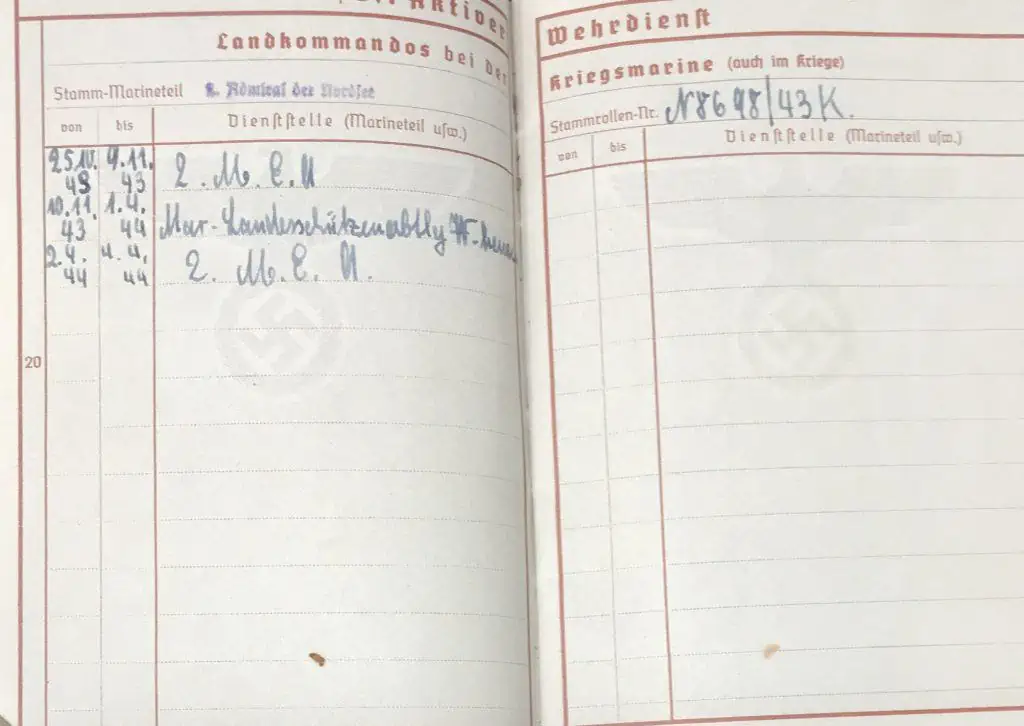 Aktiver
Landkommandos bei der
Stamm-Marineteil 2. Admiral der Nordsee
von bis Dienststelle (Marineteil usw.)
25.10. 9.11.
43 43 2. M. E. A
10.11. 1.4.
43 44 Mar-Landesschützenabtlg W-haven
2.4. 4.4.
44 44 2. M. E. A.
20
Wehrdienst
Kriegsmarine (auch im Kriege)
Stammrollen-Nr. N 8698/43 K.
von bis Dienststelle (Marineteil usw.)